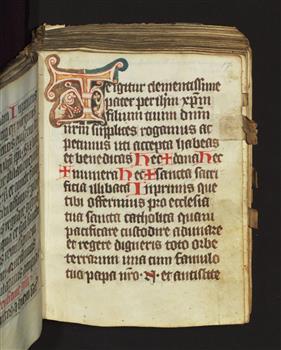 Te igitur clementissime
pater per ihm xpm
filium tuum dnm
nrm supplices rogamus ac
petimus uti accepta habeas
et benedicas hec + dona hec
+ munera hec + sancta sacri
ficia illibata Inprimis que
tibi offerimus pro ecclesia
tua sancta catholica quam
pacificare custodire adunare
et regere digneris toto orbe
terrarum una cum famulo
tuo papa nro · N · et antistite